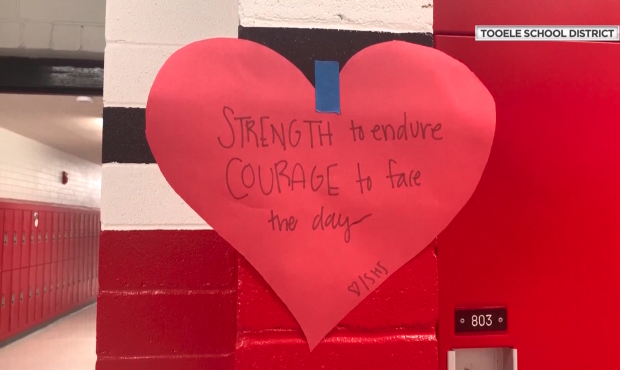 TOOELE SCHOOL DISTRICT
STRENGTH to endure
COURAGE to face
the day
♡, SHS
803